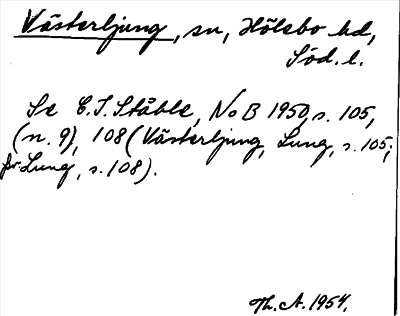 Västerljung, sn, Hölebo hd,
Söd. l.
Se C.I. Ståhle, NoB 1950, s. 105,
(n. 9), 108 (Västerljung, Lung, s. 105;
fsv. Lung, s. 108).
Th. A. 1954.